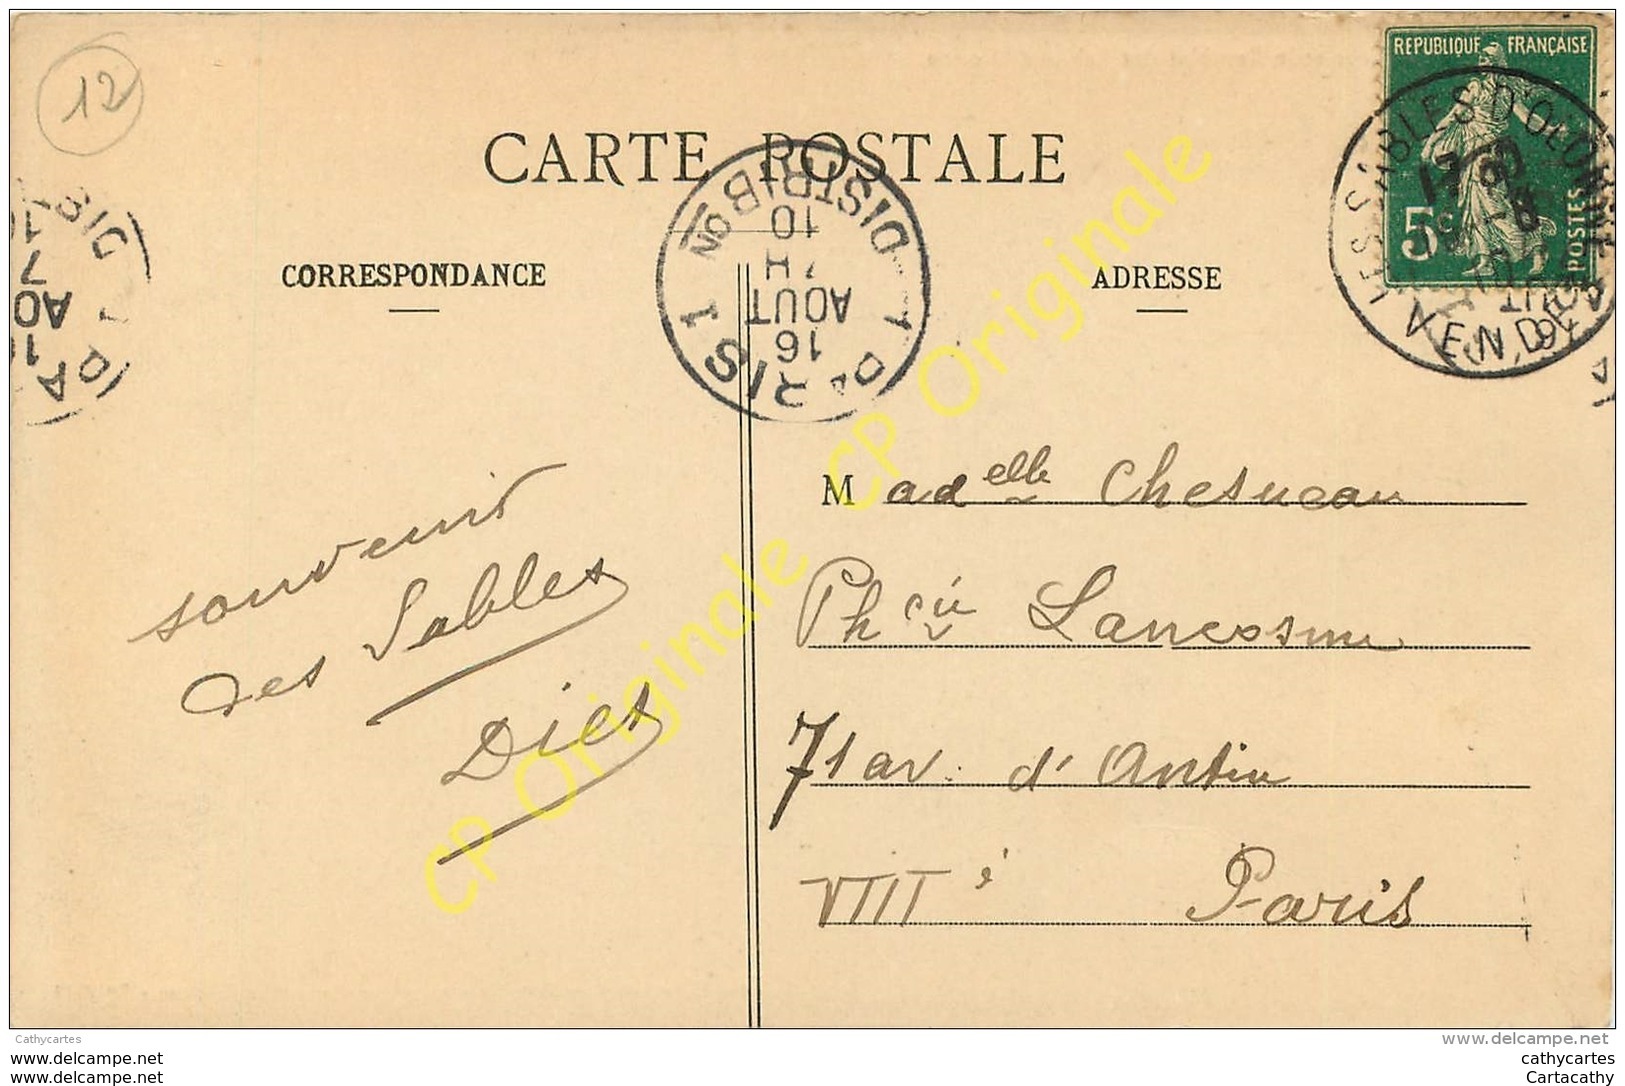 12
CARTE POSTALE
CORRESPONDANCE
ADRESSE
REPUBLIQUE FRANÇAISE
5c
POSTES
LES SABLES D'OLONNE
VENDÉE
PARIS 1 DISTRIBON
10
7 H
AOUT
16
souvenir
des Sables
Dies
Madelle Chesneau
Phcie Lancosme
71 av. d'Antin
VIIIe Paris
CP Originale CP Originale CP Originale
Cathycartes
www.delcampe.net
www.delcampe.com
www.delcampe.net
cathycartes
Cartacathy